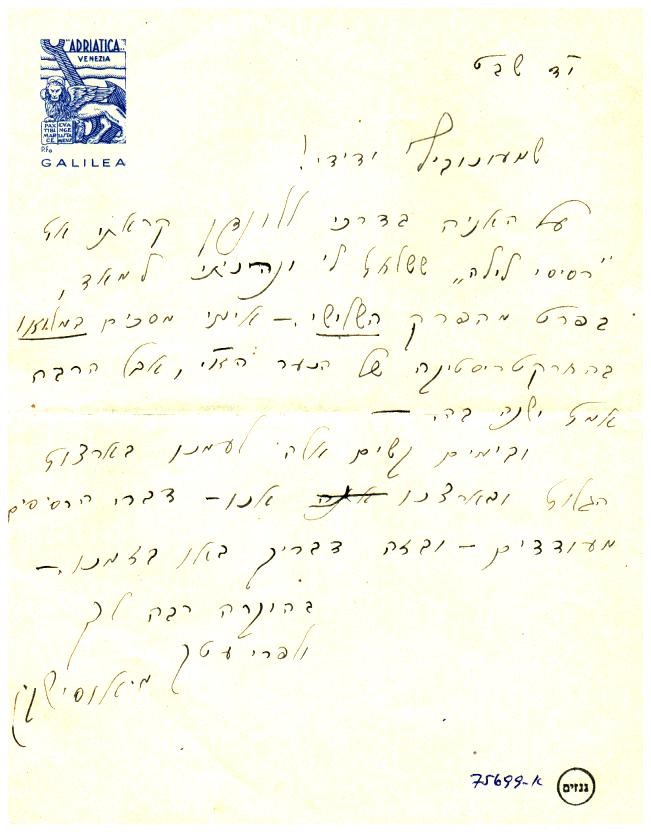 "ADRIATICA"
VENEZIA
PAX EVA
TIBI NGE
MAR LISTA
CE MEUS
GALILEA
י"ד שבט
ידידי!
על האניה בדרכי ללונדון קראתי את
"רסיסי לילה" ששלחת לי ונהניתי למאד,
בפרט מהפרק השלישי.— אינני מסכים במלואו
בהחרקטריסטיקה של הנער הזה, אבל הרבה
אמת ישנה בה. —
ובימים קשים אלה לעמנו בארצות
הגלות ובארצנו אנו – דברי הרסיסים
מעודדים – ובזה דבריך באו בזמנו.—
בהוקרה רבה לך
ולפרי עטך
מ. אוסישקין
75699-א
גנזים